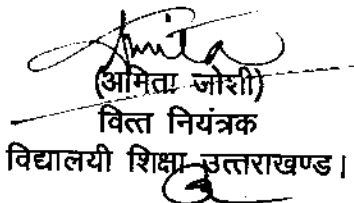 (अमिता जोशी)
वित्त नियंत्रक
विद्यालयी शिक्षा उत्तराखण्ड।